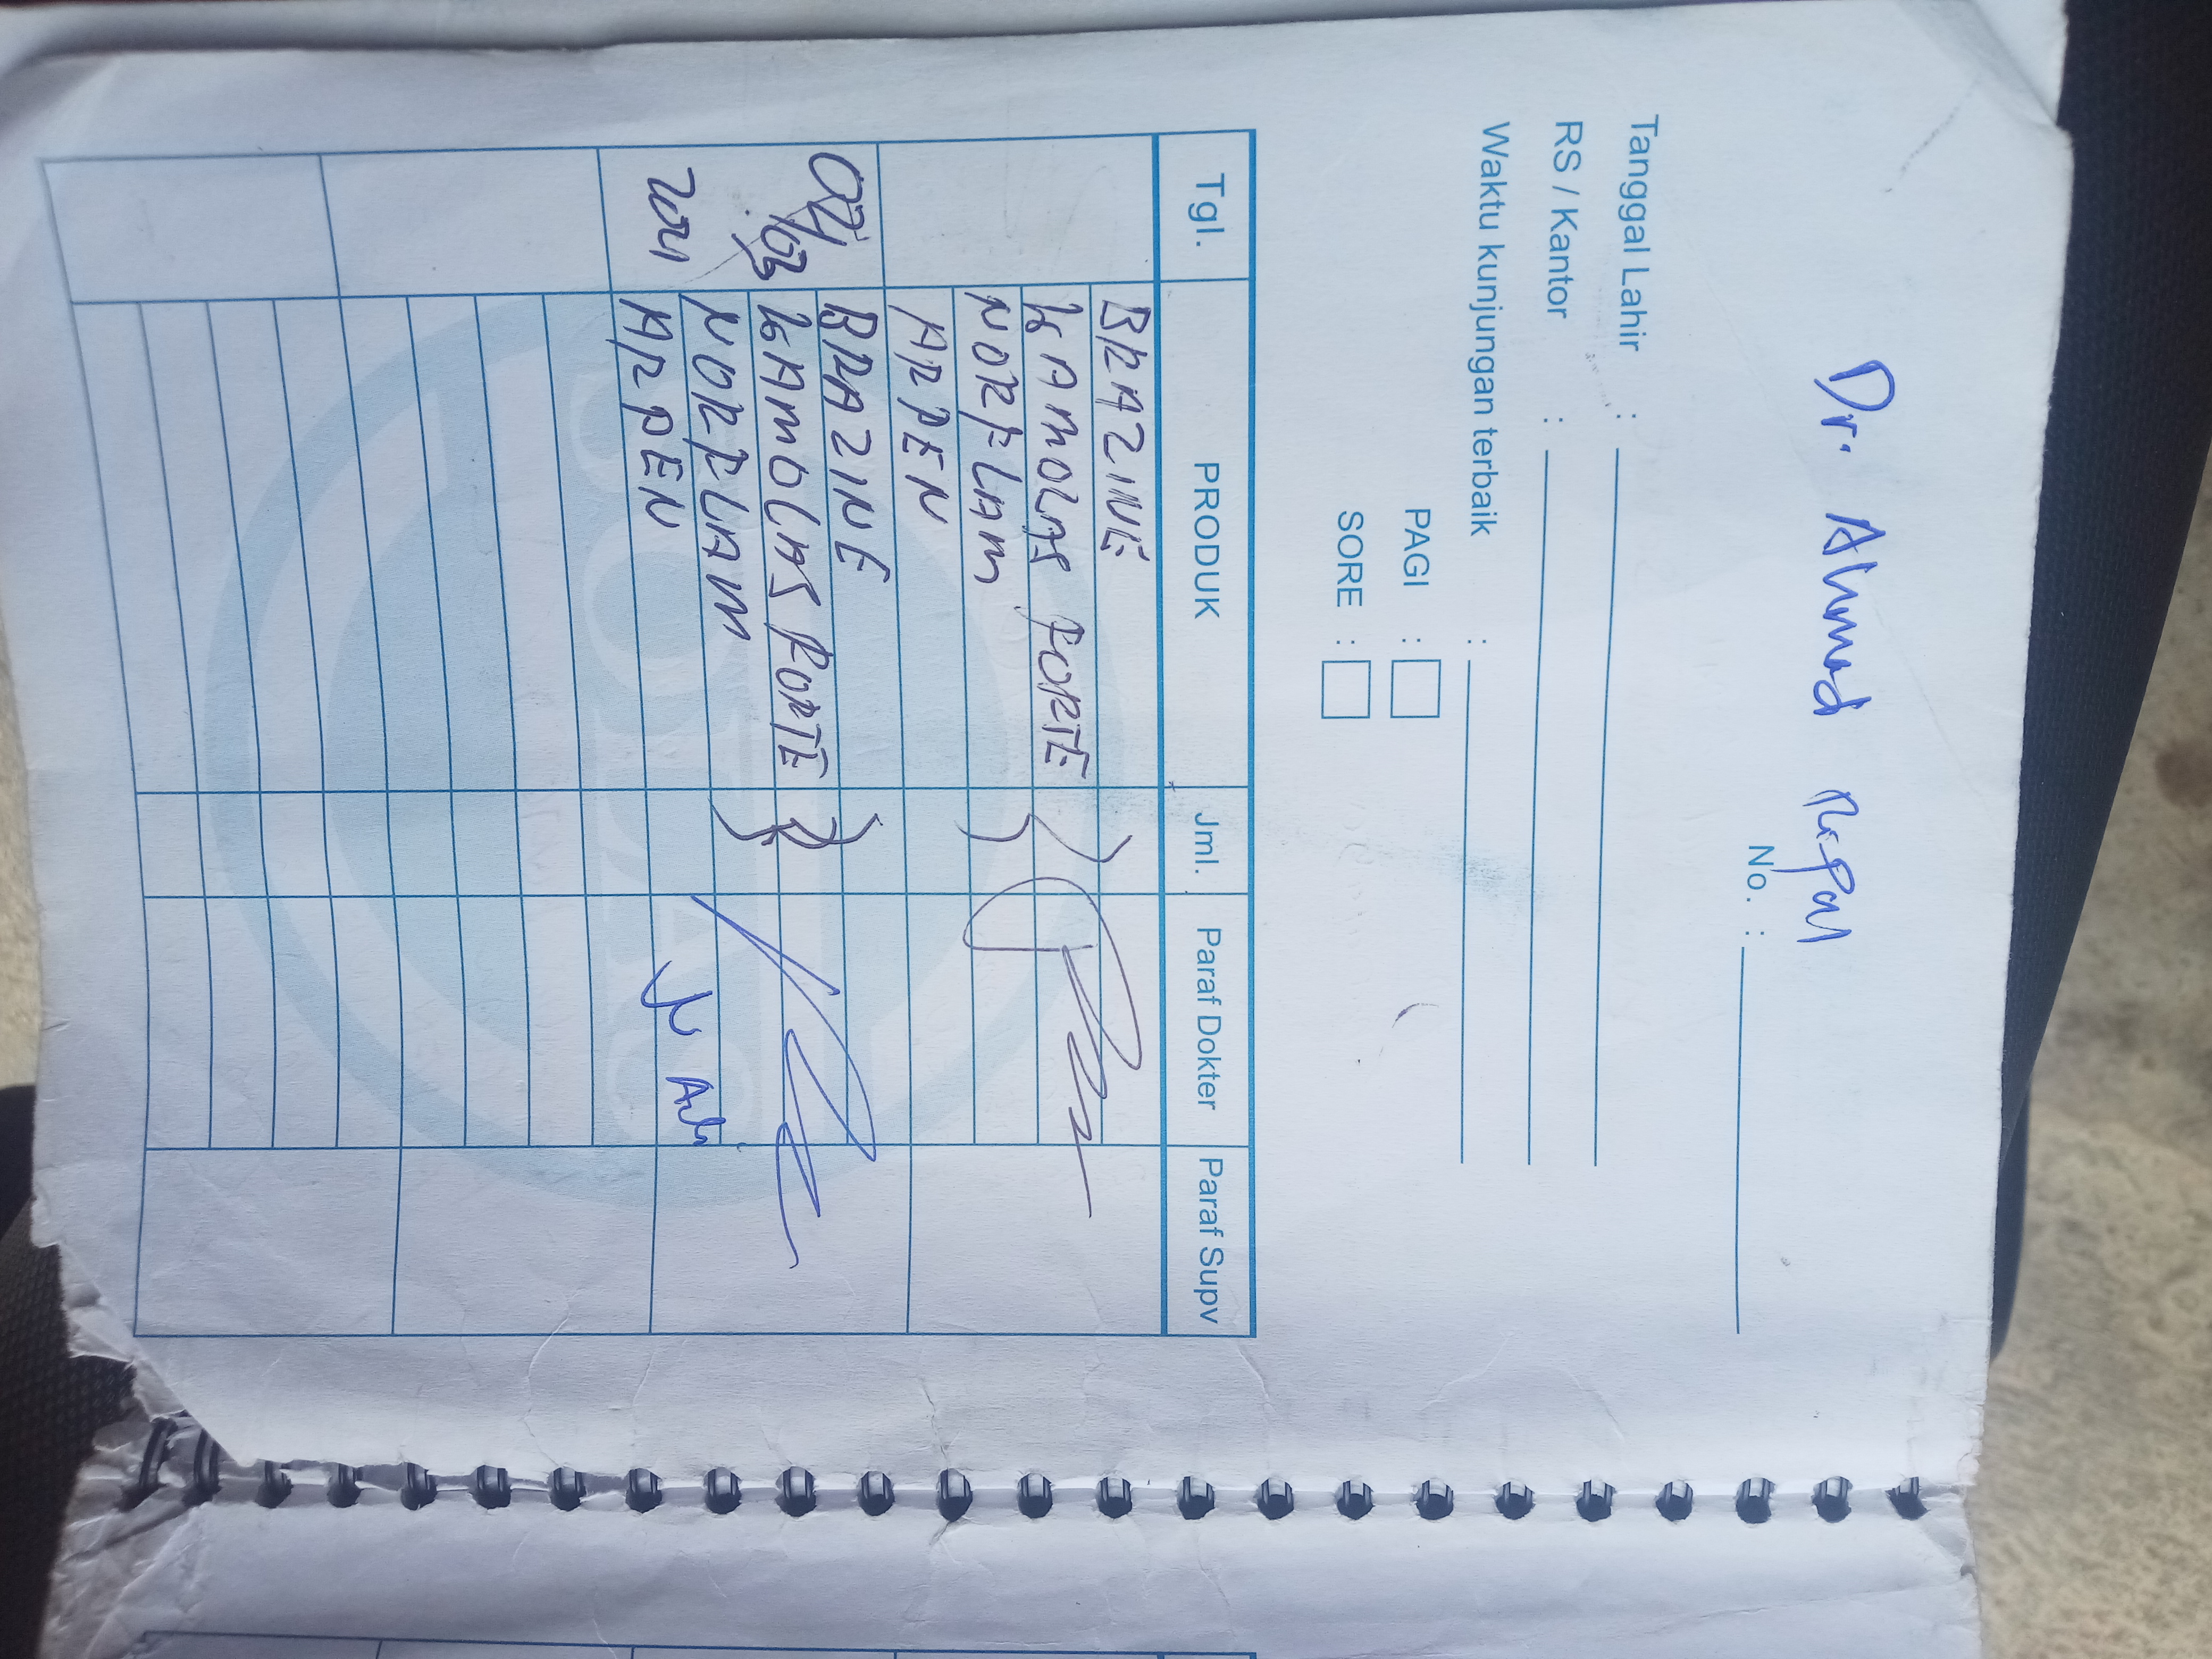 Dr. Ahmad Rifai
No. :
Tanggal Lahir :
RS / Kantor :
Waktu kunjungan terbaik :
PAGI :
SORE :
Tgl. PRODUK Jml. Paraf Dokter Paraf Supv
BRAZINE
KAMOLAS FORTE
NORFLAM
ARPEN
02/03 BRAZINE
KAMOLAS FORTE
NORFLAM
2021 ARPEN